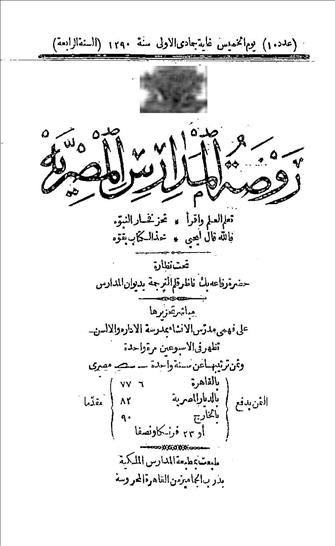 (عدد ١٠) يوم الخميس غاية جمادى الاولى سنة ١٢٩٠ (السنة الرابعة)
روضة المدارس المصرية
تعلم العلم واقرأ * تحز فخار النبوه
فالله قال ليحيى * خذ الكتاب بقوه
تحت نظارة
حضرة رفاعه بك ناظر قلم الترجمة بديوان المدارس
مباشر تحريرها
على فهمى مدرّس الانشاء بمدرسة الاداره والالسن
تظهر فى الاسبوعين مرة واحدة
وثمن ترتيبها عن سنة واحدة — مصرى
الثمن يدفع
بالقاهرة ٦ ٧٧
بالديار المصرية ٨٢
بالخارج ٩٠
أو ٢٣ فرنكا ونصفا
مقدّما
طبعت بمطبعة المدارس الملكية
بدرب الجماميز من القاهرة المحروسة